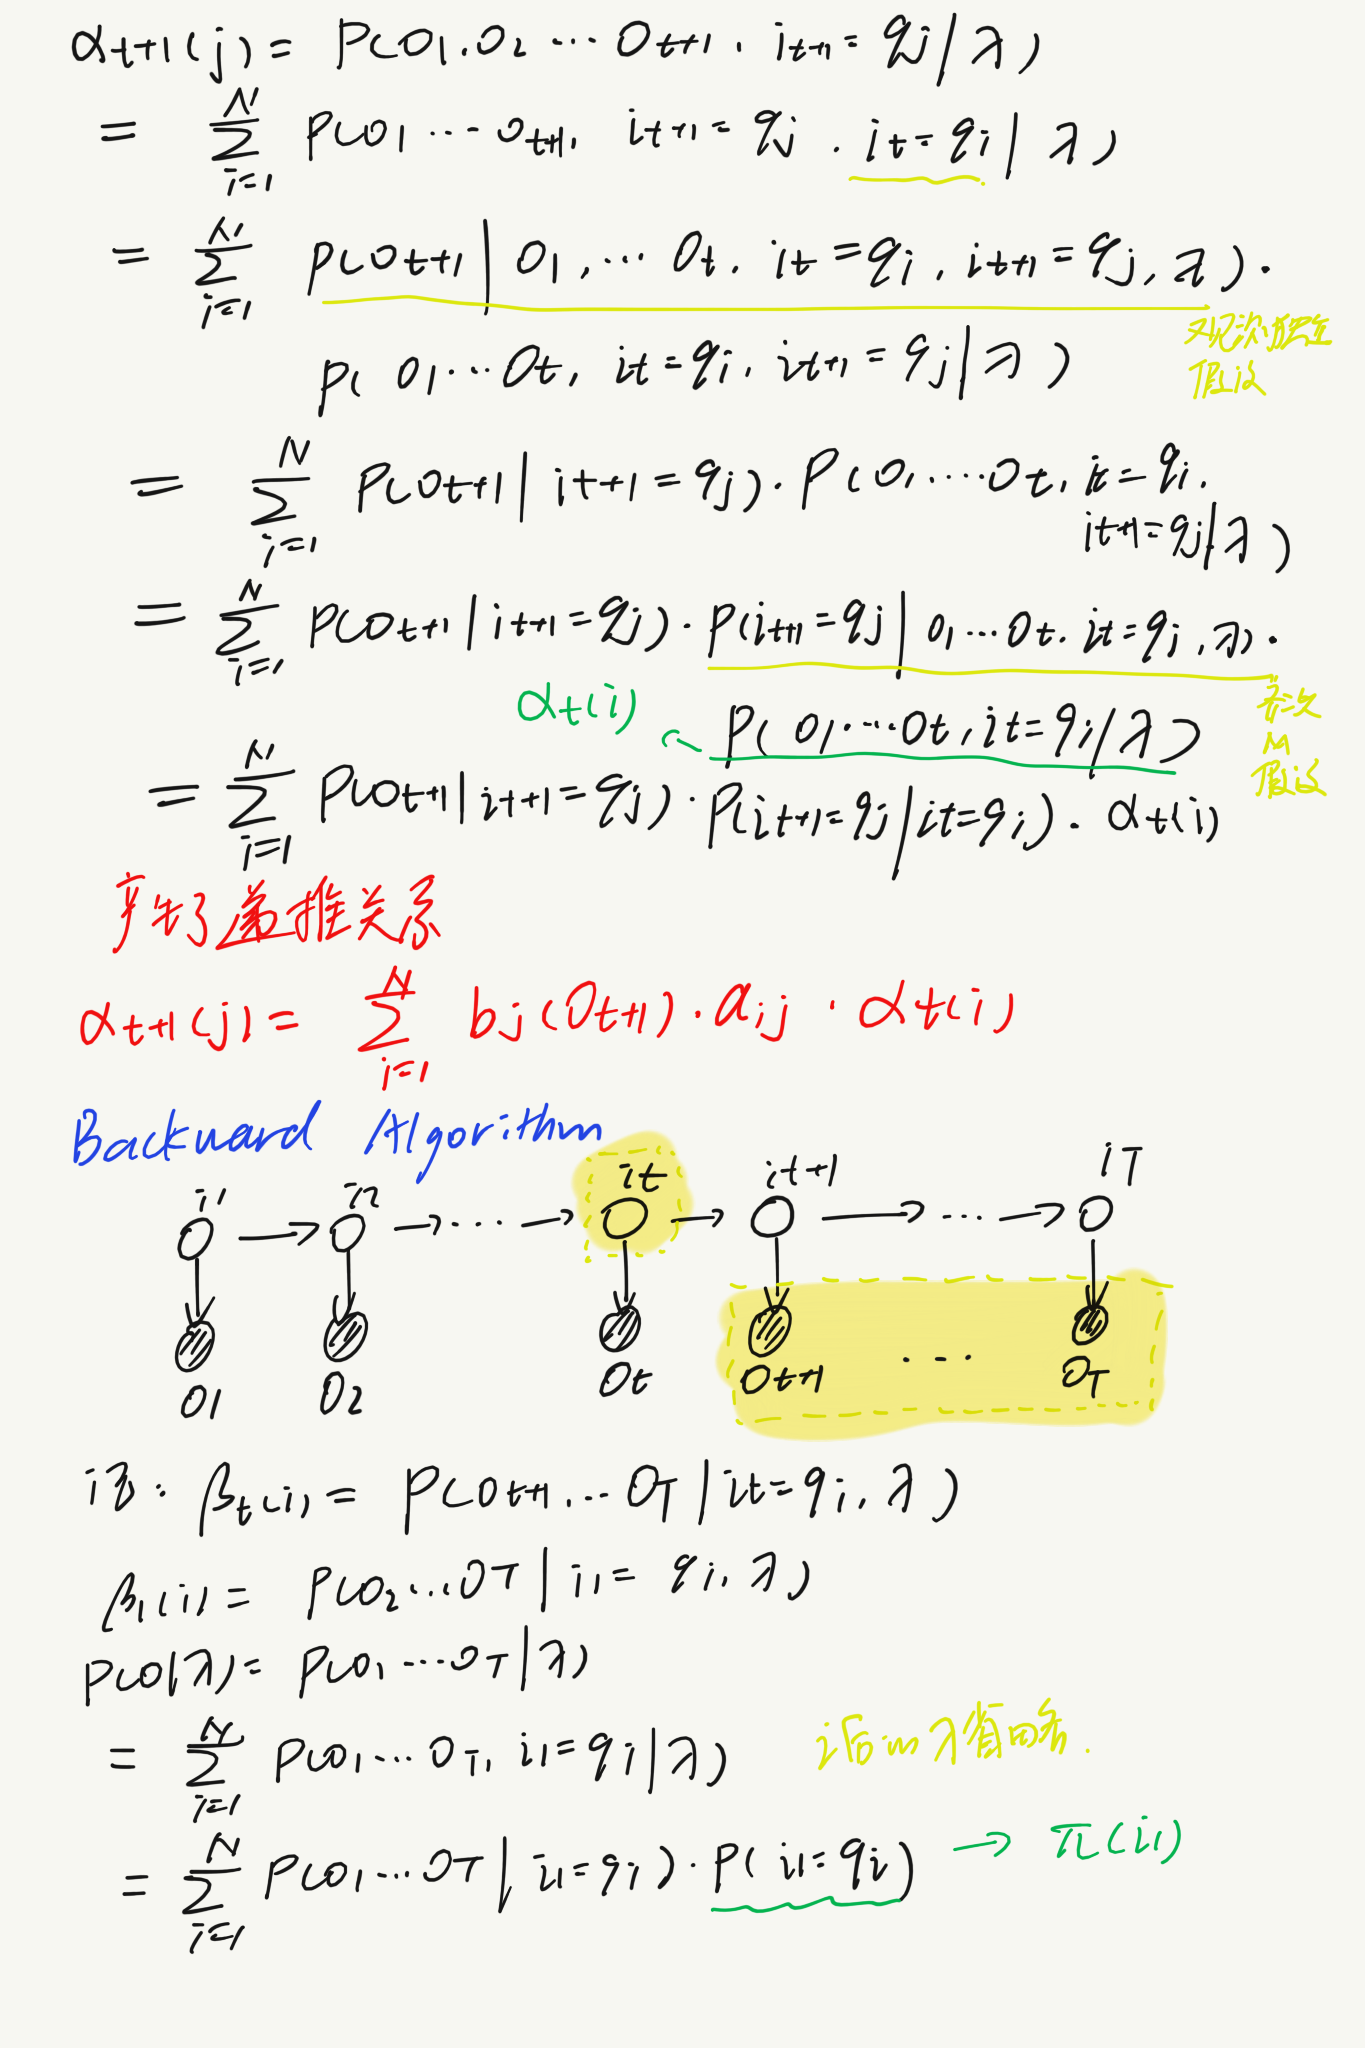 αt+1(j) = P(O1, O2 ⋯ Ot+1, it+1 = qj | λ)
= Σ_{i=1}^{N} P(O1 ⋯ Ot+1, it+1 = qj, it = qi | λ)
= Σ_{i=1}^{N} P(Ot+1 | O1, ⋯ Ot, it = qi, it+1 = qj, λ) ·
观测独立
假设
P(O1 ⋯ Ot, it = qi, it+1 = qj | λ)
= Σ_{i=1}^{N} P(Ot+1 | it+1 = qj) · P(O1 ⋯ Ot, it = qi,
it+1 = qj | λ)
= Σ_{i=1}^{N} P(Ot+1 | it+1 = qj) · P(it+1 = qj | O1 ⋯ Ot, it = qi, λ) ·
齐次
M
假设
αt(i)
P(O1, ⋯ Ot, it = qi | λ)
= Σ_{i=1}^{N} P(Ot+1 | it+1 = qj) · P(it+1 = qj | it = qi) · αt(i)
产生了递推关系
αt+1(j) = Σ_{i=1}^{N} bj(Ot+1) · aij · αt(i)
Backward Algorithm
i1 i2 it it+1 iT
⋯ ⋯
O1 O2 Ot Ot+1 ⋯ OT
记: βt(i) = P(Ot+1, ⋯ OT | it = qi, λ)
β1(i) = P(O2 ⋯ OT | i1 = qi, λ)
P(O|λ) = P(O1 ⋯ OT | λ)
= Σ_{i=1}^{N} P(O1 ⋯ OT, i1 = qi | λ)
λ省略.
= Σ_{i=1}^{N} P(O1 ⋯ OT | i1 = qi) · P(i1 = qi) → π(i1)